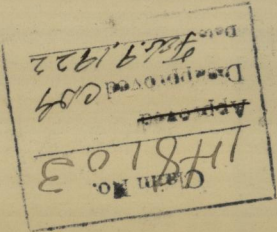 Claim No.
148103
Approved
Disapproved
Date Feb. 9, 1922